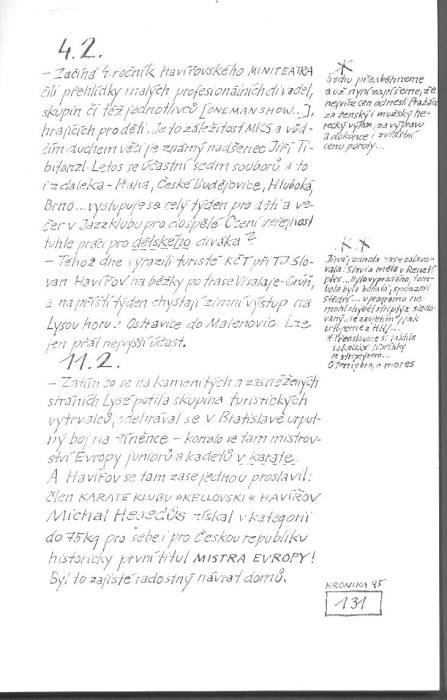 4.2.
– Začíná 4. ročník havířovského MINITEATRA
čili přehlídky malých profesionálních divadel,
skupin či též jednotlivců [ONEMANSHOW...],
hrajících pro děti. Je to záležitost MKS a vůd-
čím duchem věci je známý nadšenec Jiří Ti-
bitanzl. Letos se účastní sedm souborů a to
i z daleka – Praha, České Budějovice, Hluboká,
Brno... vystupuje se celý týden pro děti a ve-
čer v Jazzklubu pro dospělé. Ocení veřejnost
tuhle práci pro dětského diváka?
– Téhož dne vyrazili turisté KČT při TJ Slo-
van Havířov na běžky po trase Visalaje – Grúň,
a na příští týden chystají zimní výstup na
Lysou horu z Ostravice do Malenovic. Lze
jen přát nejvyšší účast.
11.2.
– Zatím co se na kamenitých a zasněžených
stráních Lysé potila skupina turistických
vytrvalců, odehrával se v Bratislavě urput-
ný boj na žíněnce – konalo se tam mistrov-
ství Evropy juniorů a kadetů v karate.
A Havířov se tam zase jednou proslavil:
člen KARATE KLUBU »KELLOVSKI« HAVÍŘOV
Michal Hegedüs získal v kategorii
do 75 kg pro sebe i pro Českou republiku
historicky první titul MISTRA EVROPY!
Byl to zajisté radostný návrat domů.
*
Trochu předběhneme
a už nyní zapíšeme, že
nejvíce cen odnesli Pražáci
za ženský i mužský he-
recký výkon, za výpravu
a dokonce i zvláštní
cenu poroty...
* *
Jiná jednota zase oslavo-
vala: Slavia měla v Renetě
ples... bylo vyprodáno, tom-
bola byla bohatá, sponzoři
štědří... v programu ne-
mohl chybět striptýz sledo-
vaný
sokolské
O tempora, o mores
KRONIKA 95
131